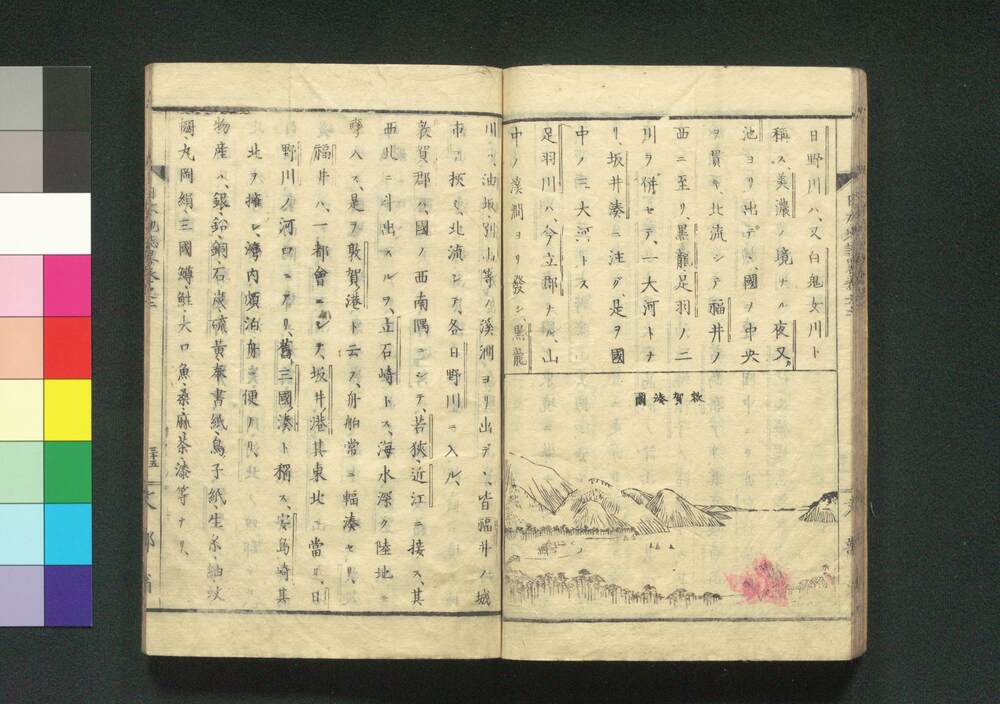 日野川ハ、又白鬼女川ト
稱ス、美濃ノ境ナル、夜叉カ
池ヨリ出デ、國ノ中央
ヲ貫キ、北流シテ福井ノ
西ニ至リ、黒龍足羽ノ二
川ヲ併セテ、一大河トナ
リ、坂井湊ニ注グ、是ヲ國
中ノ三大河トス
足羽川ハ、今立郡ナル、山
中ノ溪澗ヨリ發シ、黒龍
敦賀湊圖
川ハ、油坂、別山等ノ溪澗ヨリ出デ、皆福井ノ城
市ヲ挾ミ、北流シテ、各日野川ニ入ル、
敦賀郡ハ、國ノ西南隅ニシテ、若狹近江ニ接ス、其
西北ニ斗出スルヲ、立石崎トス、海水深ク陸地ニ
彎入ス、是ヲ敦賀港ト云フ、舟舶常ニ輻湊セリ、
福井ハ、一都會ニシテ、坂井港其東北ニ當リ、日
野川ノ河口ニアリ、舊三國湊ト稱ス、安島崎其
北ヲ擁シ、灣内頗泊舟ニ便ナリ、
物産ハ、銀、鉛、銅、石炭、硫黄、奉書紙、鳥子紙、生糸、紬、蚊
㡡、丸岡絹、三國鱒、鮭、大口魚、桑、麻、茶、漆等ナリ、
三十五
文部省